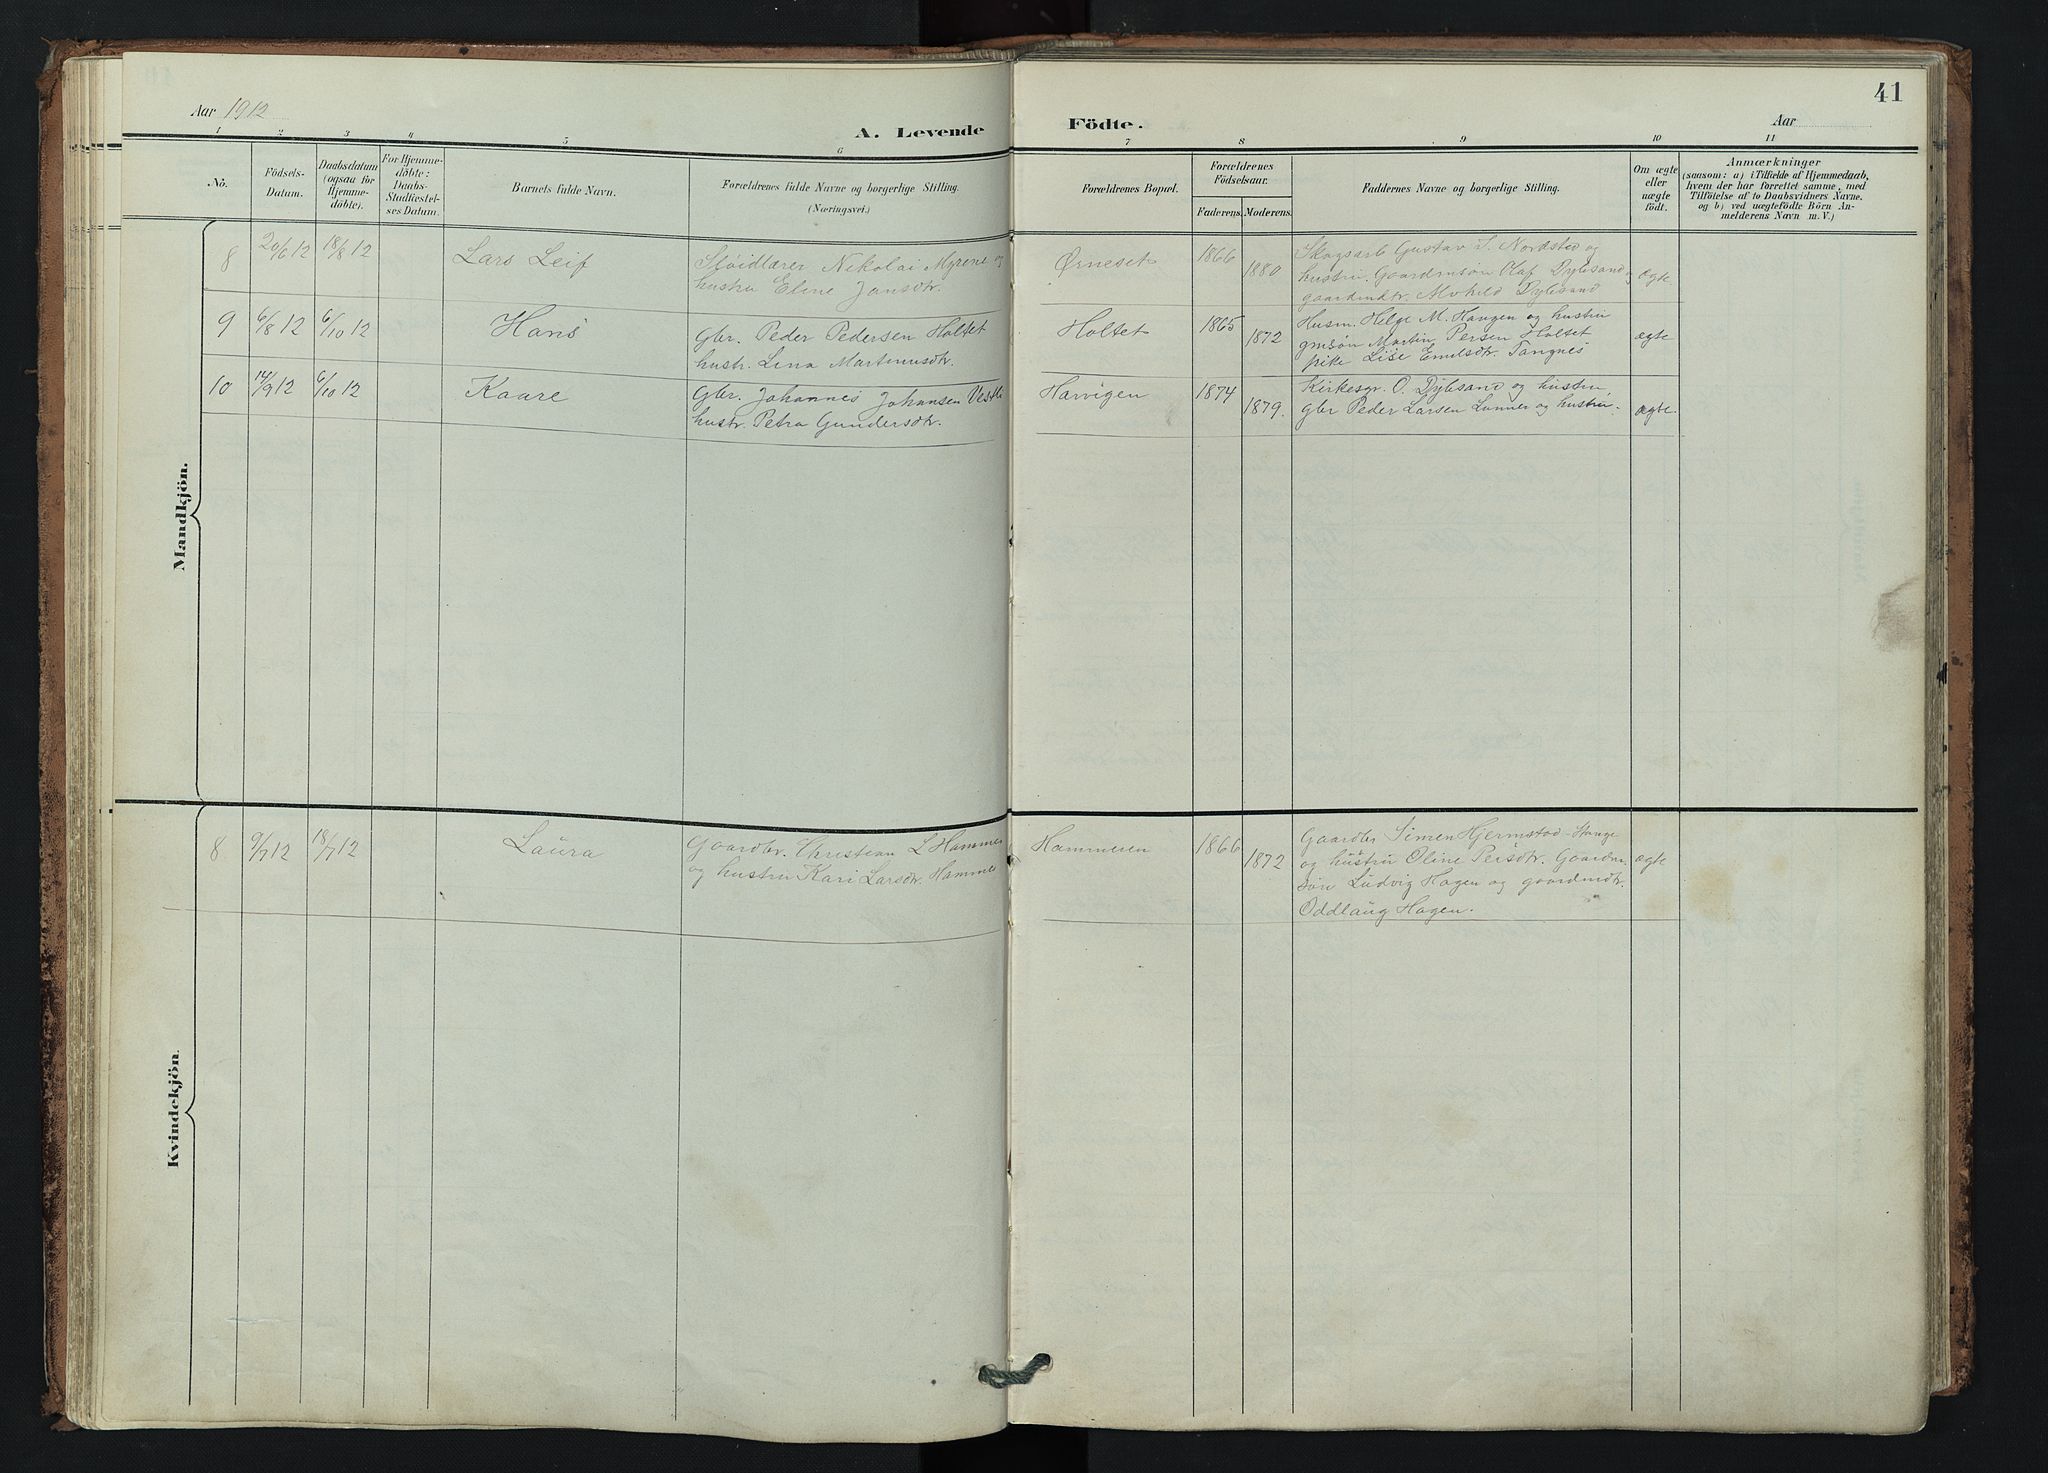 41
Aar 1912
A. Levende
Födte.
Aar
1 2 3 4 5 6 7 8 9 10 11
No.
Födsels-
Datum.
Daabsdatum
(ogsaa for
Hjemme-
döbte).
For Hjemme-
döbte:
Daabs-
Stadfæstel-
ses Datum.
Barnets fulde Navn.
Forældrenes fulde Navne og borgerlige Stilling.
(Næringsvei.)
Forældrenes Bopæl.
Forældrenes
Födselsaar.
Faderens. Moderens.
Faddernes Navne og borgerlige Stilling.
Om ægte
eller
uægte
födt.
Anmærkninger
(saasom: a) i Tilfælde af Hjemmedaab,
hvem der har forrettet samme, med
Tilföielse af to Daabsvidners Navne,
og b) ved uægtefödte Börn An-
melderens Navn m. V.)
Mandkjön.
8 20/6 12 18/8 12 Lars Leif
Sløidlærer Nikolai Myrene og
hustru Eline Jansdtr.
Ørneset 1866 1880
Skogsarb Gustav S. Nordsted og
hustru. Gaardmsøn Olaf Dylesand
gaardmdtr. Dylesand
ægte
9 6/8 12 6/10 12 Hans
Gbr. Peder Pedersen Holtet
hustr. Lina Martinusdtr.
Holtet 1865 1872
Husm. Helge M. Haugen og hustru
gmsøn Martin Persen Holtet
pike Lise Emilsdtr. Tangnes
ægte
10 14/9 12 6/10 12 Kaare
Gbr. Johannes Johansen
hustr. Petra Gundersdtr.
Harvigen 1874 1879.
Kirkesgr. O. Dylesand og hustru
gbr Peder Larsen Lunner og hustru.
ægte.
Kvindekjön.
8 9/7 12 18/7 12 Laura
Gaardbr. Kristian L Hammer
og hustru Kari Larsdtr. Hammer
Hammeren 1866 1872
Gaardbr Simen Hjermstad-Stange
og hustru Oline Persdtr. Gaardm
søn Ludvig Hagen og gaardmdtr.
Oddlaug Hagen.
ægte